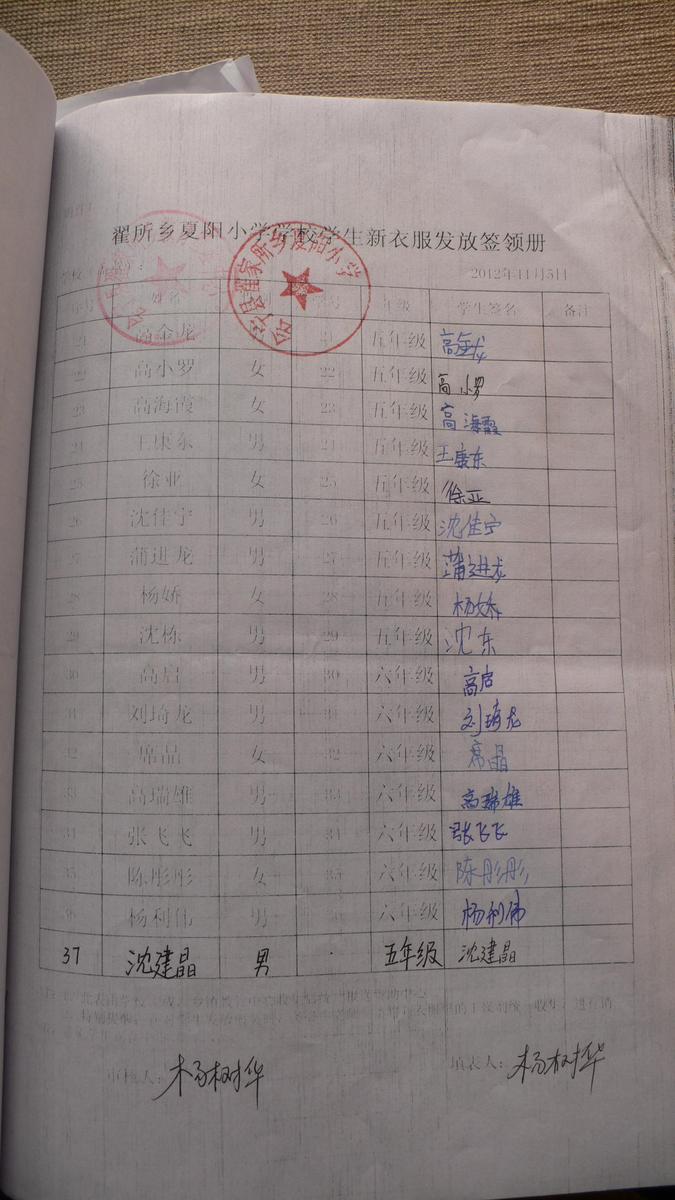 翟所乡夏阳小学学校学生新衣服发放签领册
学校
2012年11月5日
序号 姓名 别 年级 学生签名 备注
21 高金龙 21 五年级 高金龙
22 高小罗 女 22 五年级 高小罗
23 高海霞 女 23 五年级 高海霞
24 王康东 男 24 五年级 王康东
25 徐亚 女 25 五年级 徐亚
26 沈佳宁 男 26 五年级 沈佳宁
27 蒲进龙 男 27 五年级 蒲进龙
28 杨娇 女 28 五年级 杨娇
29 沈栋 男 29 五年级 沈东
30 高启 男 30 六年级 高启
31 刘琦龙 男 31 六年级 刘琦龙
32 席晶 女 32 六年级 席晶
33 高瑞雄 男 33 六年级 高瑞雄
34 张飞飞 男 34 六年级 张飞飞
35 陈彤彤 女 35 六年级 陈彤彤
36 杨利伟 男 36 六年级 杨利伟
37 沈建晶 男 五年级 沈建晶
审核人：杨树华 填表人：杨树华